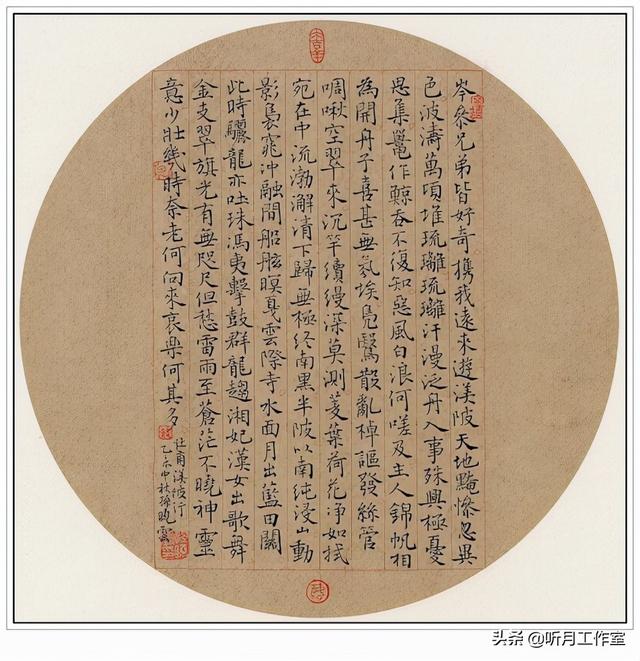 岑參兄弟皆好奇攜我遠來遊渼陂天地黤慘忽異
色波濤萬頃堆琉璃琉璃汗漫泛舟入事殊興極憂
思集鼉作鯨吞不復知惡風白浪何嗟及主人錦帆相
為開舟子喜甚無氛埃鳧鷖散亂棹謳發絲管
啁啾空翠來沉竿續縵深莫測菱葉荷花淨如拭
宛在中流渤澥清下歸無極終南黑半陂以南純浸山動
影裊窕沖融間船舷暝戛雲際寺水面月出藍田關
此時驪龍亦吐珠馮夷擊鼓群龍趨湘妃漢女出歌舞
金支翠旗光有無咫尺但愁雷雨至蒼茫不曉神靈
意少壯幾時奈老何向來哀樂何其多
杜甫渼陂行
乙未中秋孫曉雲
头条 @听月工作室